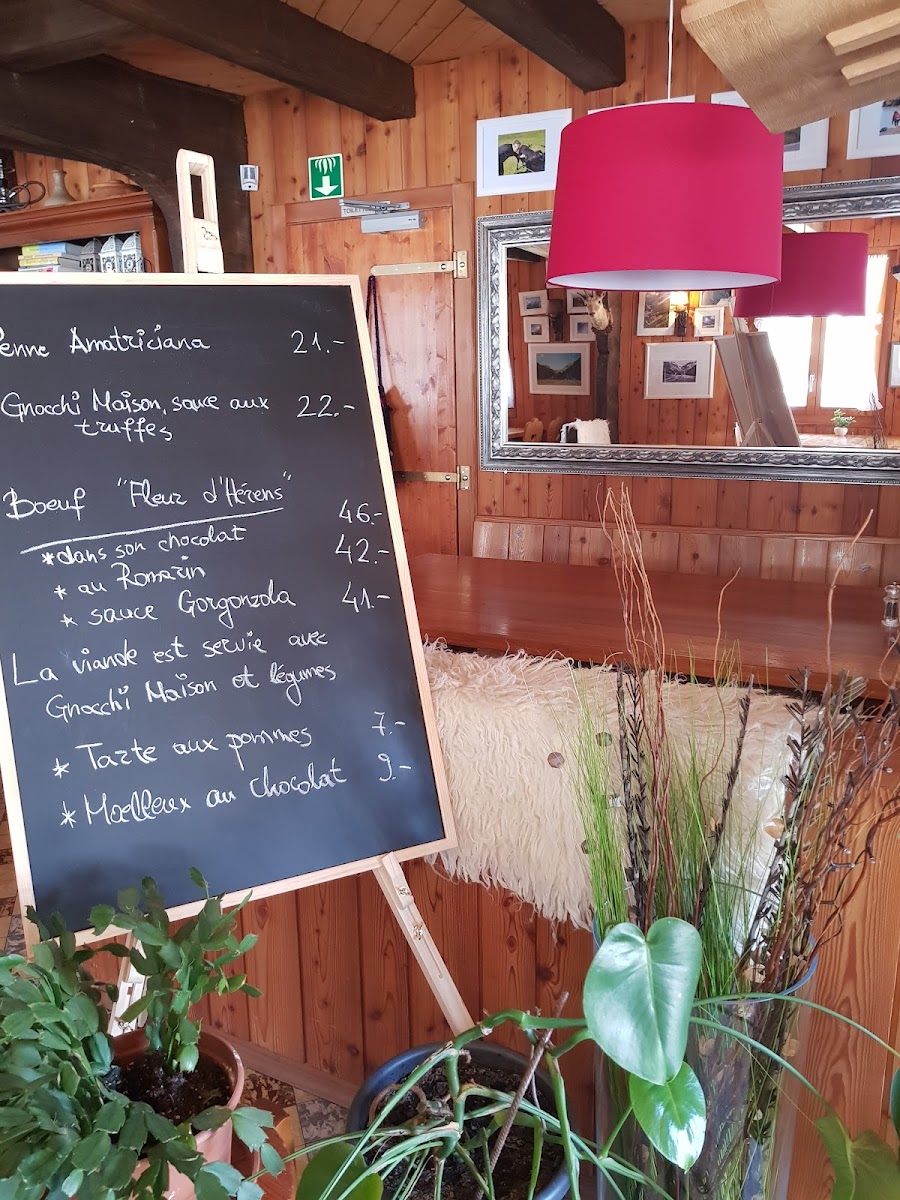 Penne Amatriciana 21.-
Gnocchi Maison, sauce aux 22.-
truffes
Boeuf "Fleur d'Hérens"
*dans son chocolat 46.-
* au Romarin 42.-
* sauce Gorgonzola 41.-
La viande est servie avec
Gnocchi Maison et légumes
* Tarte aux pommes 7.-
* Moelleux au chocolat 9.-